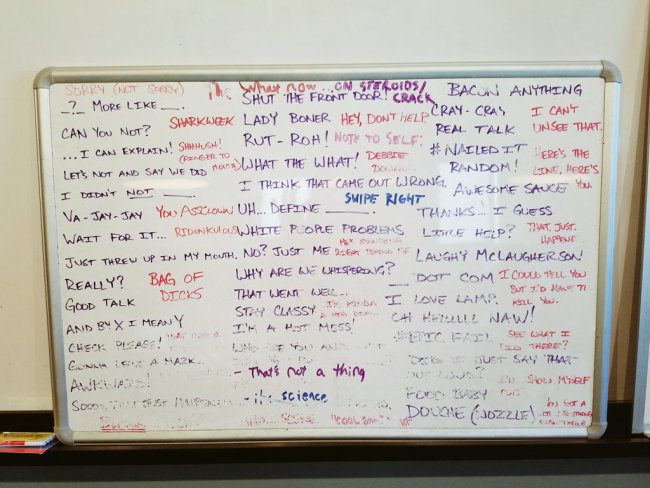 SORRY (NOT SORRY)
_?_ MORE LIKE ___.
CAN YOU NOT?
SHARKWEEK
...I CAN EXPLAIN!
SHHHUSH!
(FINGER TO
LET'S NOT AND SAY WE DID
I DIDN'T NOT ____.
VA-JAY-JAY
YOU ASSCLOWN
WAIT FOR IT...
RIDONKULOUS
JUST THREW UP IN MY MOUTH.
REALLY?
BAG OF
DICKS
GOOD TALK
AND BY X I MEAN Y
CHECK PLEASE!
GUNNA LEAVE A MARK...
AWKWARD!
SOOOO, THAT JUST HAPPENED
What now
...ON STEROIDS/
CRACK
SHUT THE FRONT DOOR!
LADY BONER
HEY, DON'T HELP
RUT-ROH!
NOTE TO SELF:
WHAT THE WHAT!
DEBBIE
DOWNER
I THINK THAT CAME OUT WRONG.
SWIPE RIGHT
UH... DEFINE ____.
WHITE PEOPLE PROBLEMS
NO? JUST ME
HE'S STANDING
RIGHT BEHIND ME
WHY ARE WE WHISPERING?
THAT WENT WELL...
STAY CLASSY
I'M KINDA
A BIG DEAL
I'M A HOT MESS!
- That's not a thing
science
SCENE.
BACON ANYTHING
CRAY-CRAY
I CAN'T
UNSEE THAT.
REAL TALK
#NAILED IT
HERE'S THE
LINE, HERE'S
YOU.
RANDOM!
AWESOME SAUCE
THANKS... I GUESS
LITTLE HELP?
THAT. JUST.
HAPPENE
LAUGHY MCLAUGHERSON!
__ DOT COM
I COULD TELL YOU
BUT I'D HAVE TO
KILL YOU.
I LOVE LAMP.
OH HELLLLL NAW!
#EPIC FAIL
SEE WHAT I
DID THERE?
DID I JUST SAY THAT
OUT LOUD?
I'LL SHOW MYSELF
OUT
FOOD BABY
DOUCHE (NOZZLE)